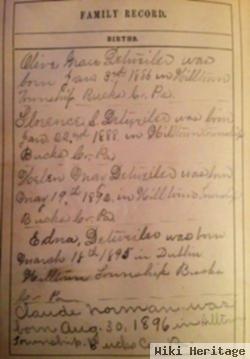 FAMILY RECORD.
BIRTHS.
Olive Grace Detweiler was
born Jan 3rd 1886 in Hilltown
Township Bucks Co. Pa.
Florence S Detweiler was born
Jan 22nd 1888. in Hilltown Township
Bucks Co. Pa
Helen May Detweiler was born
May 19th 1892. in Hilltown Township
Bucks Co. Pa
Edna, Detweiler was born
March 18th 1895 in Dublin
Hilltown Township Bucks
Co. Pa
Claude Norman was
born Aug. 30, 1896 in Hilltown
Township. Bucks Co. Pa
Wiki Heritage